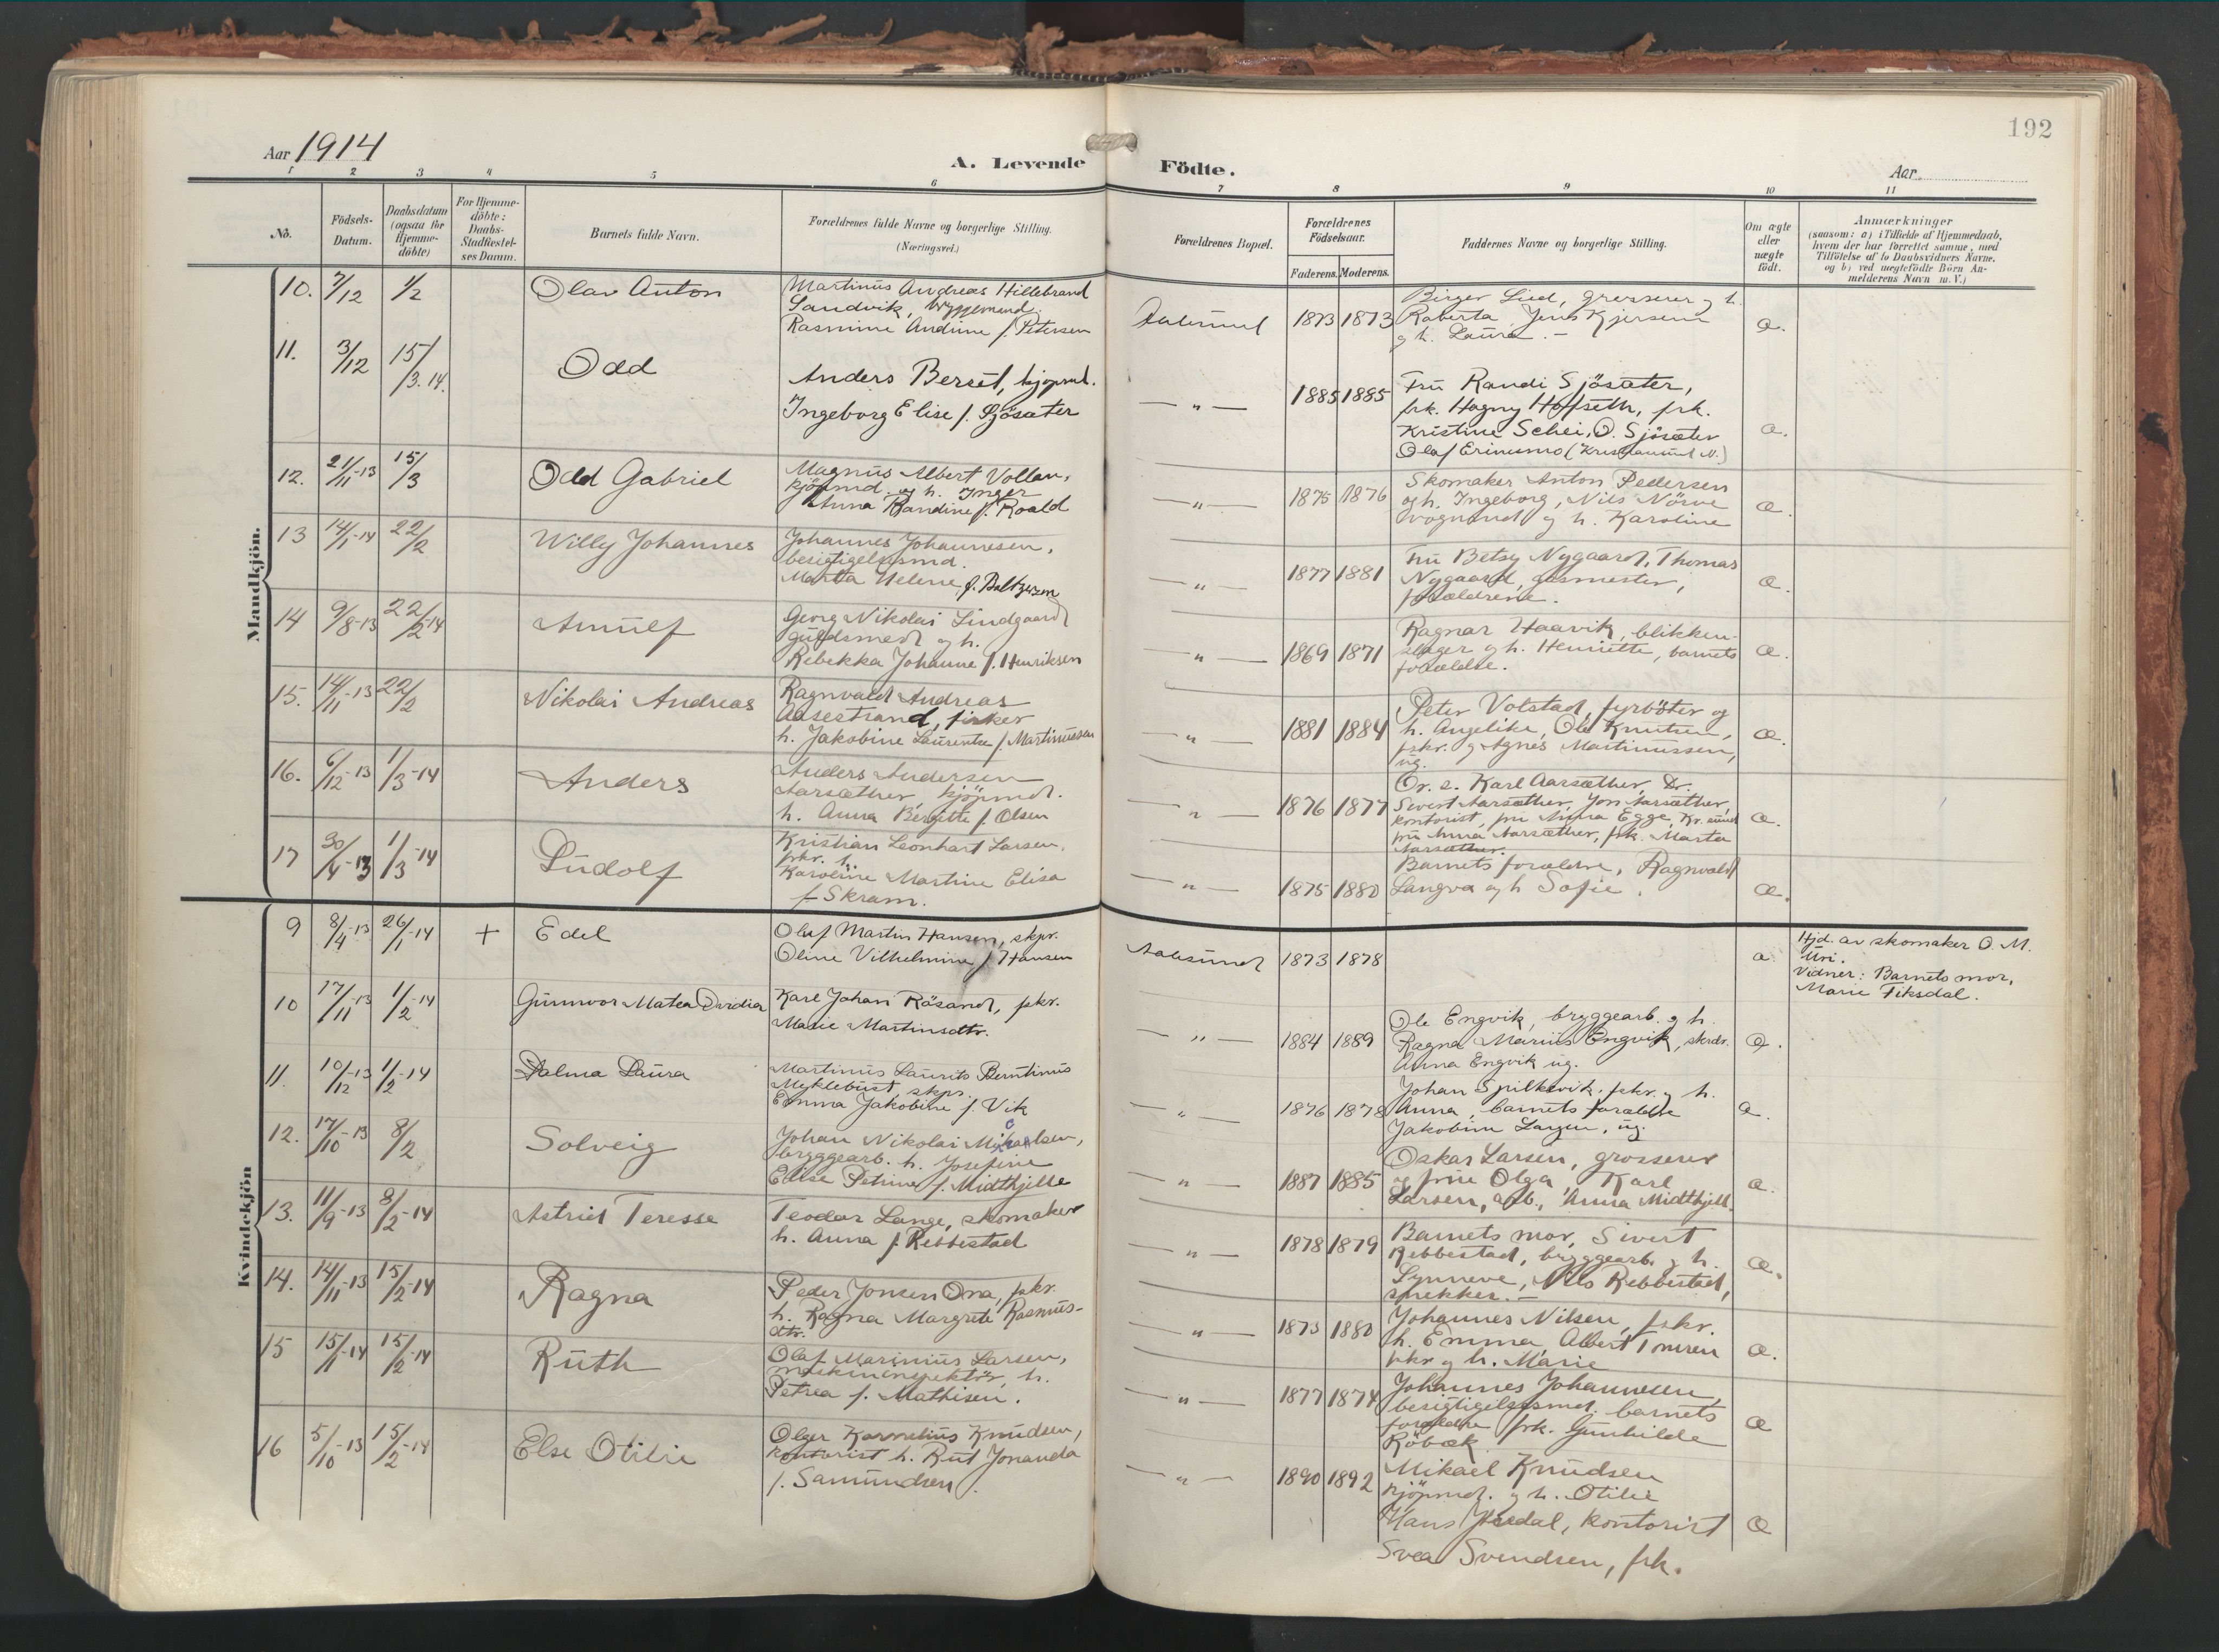 192
Aar 1914
A. Levende Födte.
Aar
1 2 3 4 5 6 7 8 9 10 11
No.
Födsels-Datum.
Daabsdatum (ogsaa for Hjemme-döbte)
For Hjemme-döbte: Daabs-Stadfæstel-ses Datum.
Barnets fulde Navn.
Forældrenes fulde Navne og borgerlige Stilling. (Næringsvei.)
Forældrenes Bopæl.
Forældrenes Födselsaar.
Faderens. Moderens.
Faddernes Navne og borgerlige Stilling.
Om ægte eller uægte födt.
Anmærkninger
(saasom: a) i Tilfælde af Hjemmedaab,
hvem der har forrettet samme, med
Tilföielse af to Daabsvidners Navne,
og b) ved uægtefödte Börn An-
melderens Navn m. V.)
Mandkjön.
10. 7/12 1/2 Olav Anton
Martinus Andreas Hillebrand
Sandvik, bryggemand
Rasmine Andrine f. Petersen
Aalesund 1873 1873
Birger Lied, grosserer og h.
Roberta Jens Kjersem
og h. Laura. –
æ.
11. 3/12 15/3.14. Odd
Anders Berset, kjøpmd.
Ingeborg Elise f. Sjösæter
— " — 1885 1885
Fru Randi Sjösæter,
frk. Hagny Hofseth, frk.
Kristine Schei, O. Sjösæter
Olaf (Kristiansund N.)
æ.
12. 21/11-13 15/3 Odd Gabriel
Magnus Albert Vollan,
kjöpmd. og h. Inger
Anna Randine f. Roald
— " — 1875 1876
Skomaker Anton Pedersen
og h. Ingeborg, Nils Nörve
vognmd og h. Karoline
æ.
13 14/1-14 22/2 Willy Johannes
Johannes Johannesen,
besigtigelsesmd.
Marta Helene f. Baltzersen
— " — 1877 1881
Fru Betsy Nygaard, Thomas
Nygaard, gasmester,
forældrene.
æ.
14 9/8-13 22/2-14 Arnulf
Georg Nikolai Lindgaard
guldsmed og h.
Rebekka Johanne f. Henriksen
— " — 1869 1871
Ragnar Haavik, blikken-
slager og h. Henriette, barnets
forældre.
æ.
15. 14/11-13 22/2 Nikolai Andreas
Ragnvald Andreas
Aasestrand, fisker
h. Jakobine Laurentse f. Martinussen
— " — 1881 1884
Peter Volstad, fyrböter og
h. Angelike, Ole Knutsen,
fskr. og Agnes Martinussen,
ug.
æ.
16. 6/12-13 1/3-14 Anders
Anders Andersen
Aarsæther, kjöpmd.
h. Anna Bergitte f. Olsen
— " — 1876 1877
Or. s. Karl Aarsæther, Dr.
Sivert Aarsæther, Jon Aarsæther,
kontorist, fru Anna Egge, Kr.sund
fru Anna Aarsæther, frk. Marta
Aarsæther.
æ.
17 30/4-13 1/3-14 Ludolf
Kristian Leonhart Larsen,
fskr. h.
Karoline Martine Elisa
f. Skram.
— " — 1875 1880
Barnets forældre, Ragnvald
Langva og h Sofie.
æ.
Kvindekjön
9 8/4-13 26/1-14 + Edel
Oluf Martin Hansen, skpr.
Oline Vilhelmine f Hansen
Aalesund 1873 1878
æ
Hjd. av skomaker O. M.
Uri.
Vidner: Barnets mor,
Marie Fiksdal.
10 17/11-13 1/2-14 Gunnvor Matea Davidia
Karl Johan Räsand, fskr.
Marie Martinsdtr.
— " — 1884 1889
Ole Engvik, bryggearb. og h.
Ragna Marius Engvik, skrdr.
Anna Engvik ug.
æ.
11. 10/12-13 1/2-14 Palma Laura
Martinus Laurits Berntinus
Myklebust, skpr.
Emma Jakobine f. Vik
— " — 1876 1878
Johan Spilkevik, fskr. og h.
Anna, barnets forældre
Jakobine Larsen, ug.
æ.
12. 17/10-13 8/2 Solveig
Johan Nikolai Mikaelsen,
bryggearb. h. Josefine
Elise Petrine f. Midthjelle
— " — 1887 1885
Oskar Larsen, grosserer
og frue Olga, Karl
Larsen, arb., Anna Midthjell.
æ.
13. 11/9-13 8/2-14 Astrid Teresse
Teodor Lange, skomaker
h. Anna f. Rebbestad
— " — 1878 1879
Barnets mor, Sivert
Rebbestad, bryggearb. og h.
Synneve, Nils Rebbestad,
snekker. –
æ.
14. 14/11-13 15/2-14 Ragna
Peder Jonsen Ona, fskr.
h. Ragna Margrete Rasmus-
dtr.
— " — 1873 1880
Johannes Nilsen, fskr.
h. Emma, Albert Iversen
fskr og h. Marie
æ.
15 15/1-14 15/2-14 Ruth
Olaf Marinius Larsen,
maskininspektör, h.
Petrea f. Mathisen.
— " — 1877 1874
Johannes Johannesen,
besigtigelsesmd. barnets
forældre frk. Gunhilde
Röbæk
æ
16 5/10-13 15/2-14 Else Otilie
Olger Kornelius Knudsen,
kontorist h. Rut Jonanda
f. Samundsen.
— " — 1890 1892
Mikael Knudsen
kjöpmd. og h. Otilie
Hans , kontorist
Svea Svendsen, frk.
æ